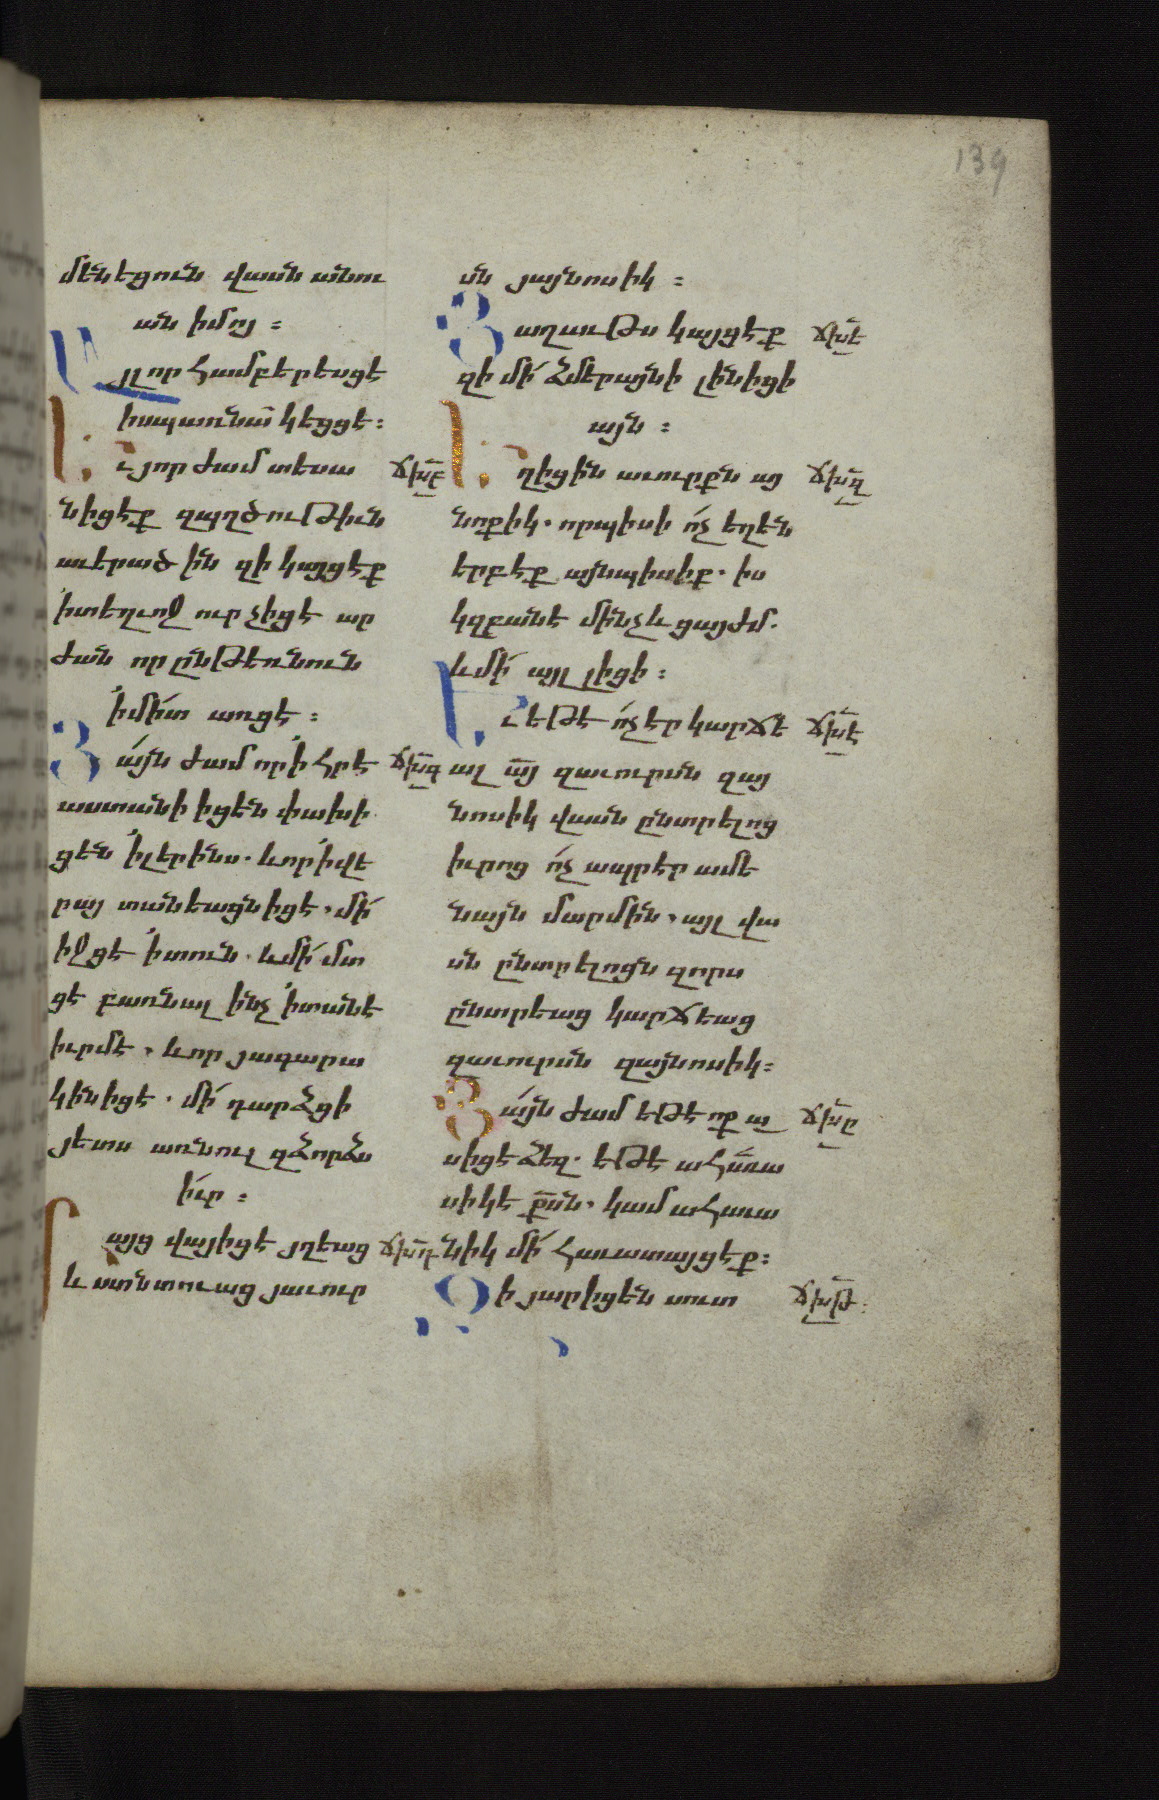 139
մենեցուն վասն անու
ան իմոյ ։
Այլ որ համբերեսցէ
իսպառ նա̅ կեցցէ ։
Եւ յորժամ տեսա ճխ̅բ
նիցէք զպղծութիւն
աւերածին զի կայցէք
՛ի տեղւոջ ուր չիցէ ար
ժան որ ընթեռնուն
՛ի միտ առցէ ։
Յայնժամ որ ՛ի հրէ ճխ̅գ
աստանի իցեն փախի
ցեն ՛ի լերինս. և որ ՛ի վե
րայ տանեացն իցէ, մի՛
իջցէ ՛ի տուն. և մի՛ մտ
ցէ բառնալ ինչ ՛ի տանէ
իւրմէ, և որ յագարա
կին իցէ. մի՛ դարձցի
յետս առնուլ զձորձս
իւր ։
Բայց վայ իցէ յղեաց ճխ̅դ
և ստնտուաց յաւուր
սն յայնոսիկ ։
Յաղաւթս կայցէք ճխ̅ե
զի մի՛ ձմերայնի լինիցի
այն ։
Եղիցին աւուրքն այ ճխ̅զ
նոքիկ. որպիսի ո՛չ եղեն
երբեք այնպիսիք. ի ս
կզբանէ մինչև ցայժմ.
և մի՛ այլ լիցի ։
Եւ եթէ ո՛չ էր կարճե ճխ̅է
ալ ա̅յ զաւուրսն զայ
նոսիկ վասն ընտրելոց
իւրոց ո՛չ ապրէր ամե
նայն մարմին, այլ վա
սն ընտրելոցն զորս
ընտրեաց կարճեաց
զաւուրսն զայնոսիկ ։
Յայնժամ եթէ ոք ա ճխ̅ը
սիցէ ձեզ. եթէ ահա̅ւա
սիկ է ք̅սն, կամ ահաւա
նիկ մի՛ հաւատայցէք ։
Զի յարիցեն սուտ ճխ̅թ ։